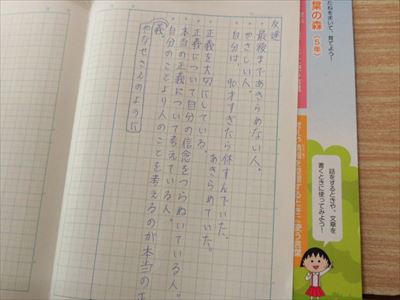 友達
・最後まであきらめない人。
・やさしい人。
・自分は、90才すぎたら休すんでいた。
あきらめていた。
・正義を大切にしている。
・正義について自分の信念をつらぬいている人。
・本当の正義について考えている人。
・自分のことより人のことを考えるのが本当の正
義
やなせさんのように
たねをまいて、育てよう!
葉の森(5年)
話をするときや、文章を
書くときに使ってみよう!